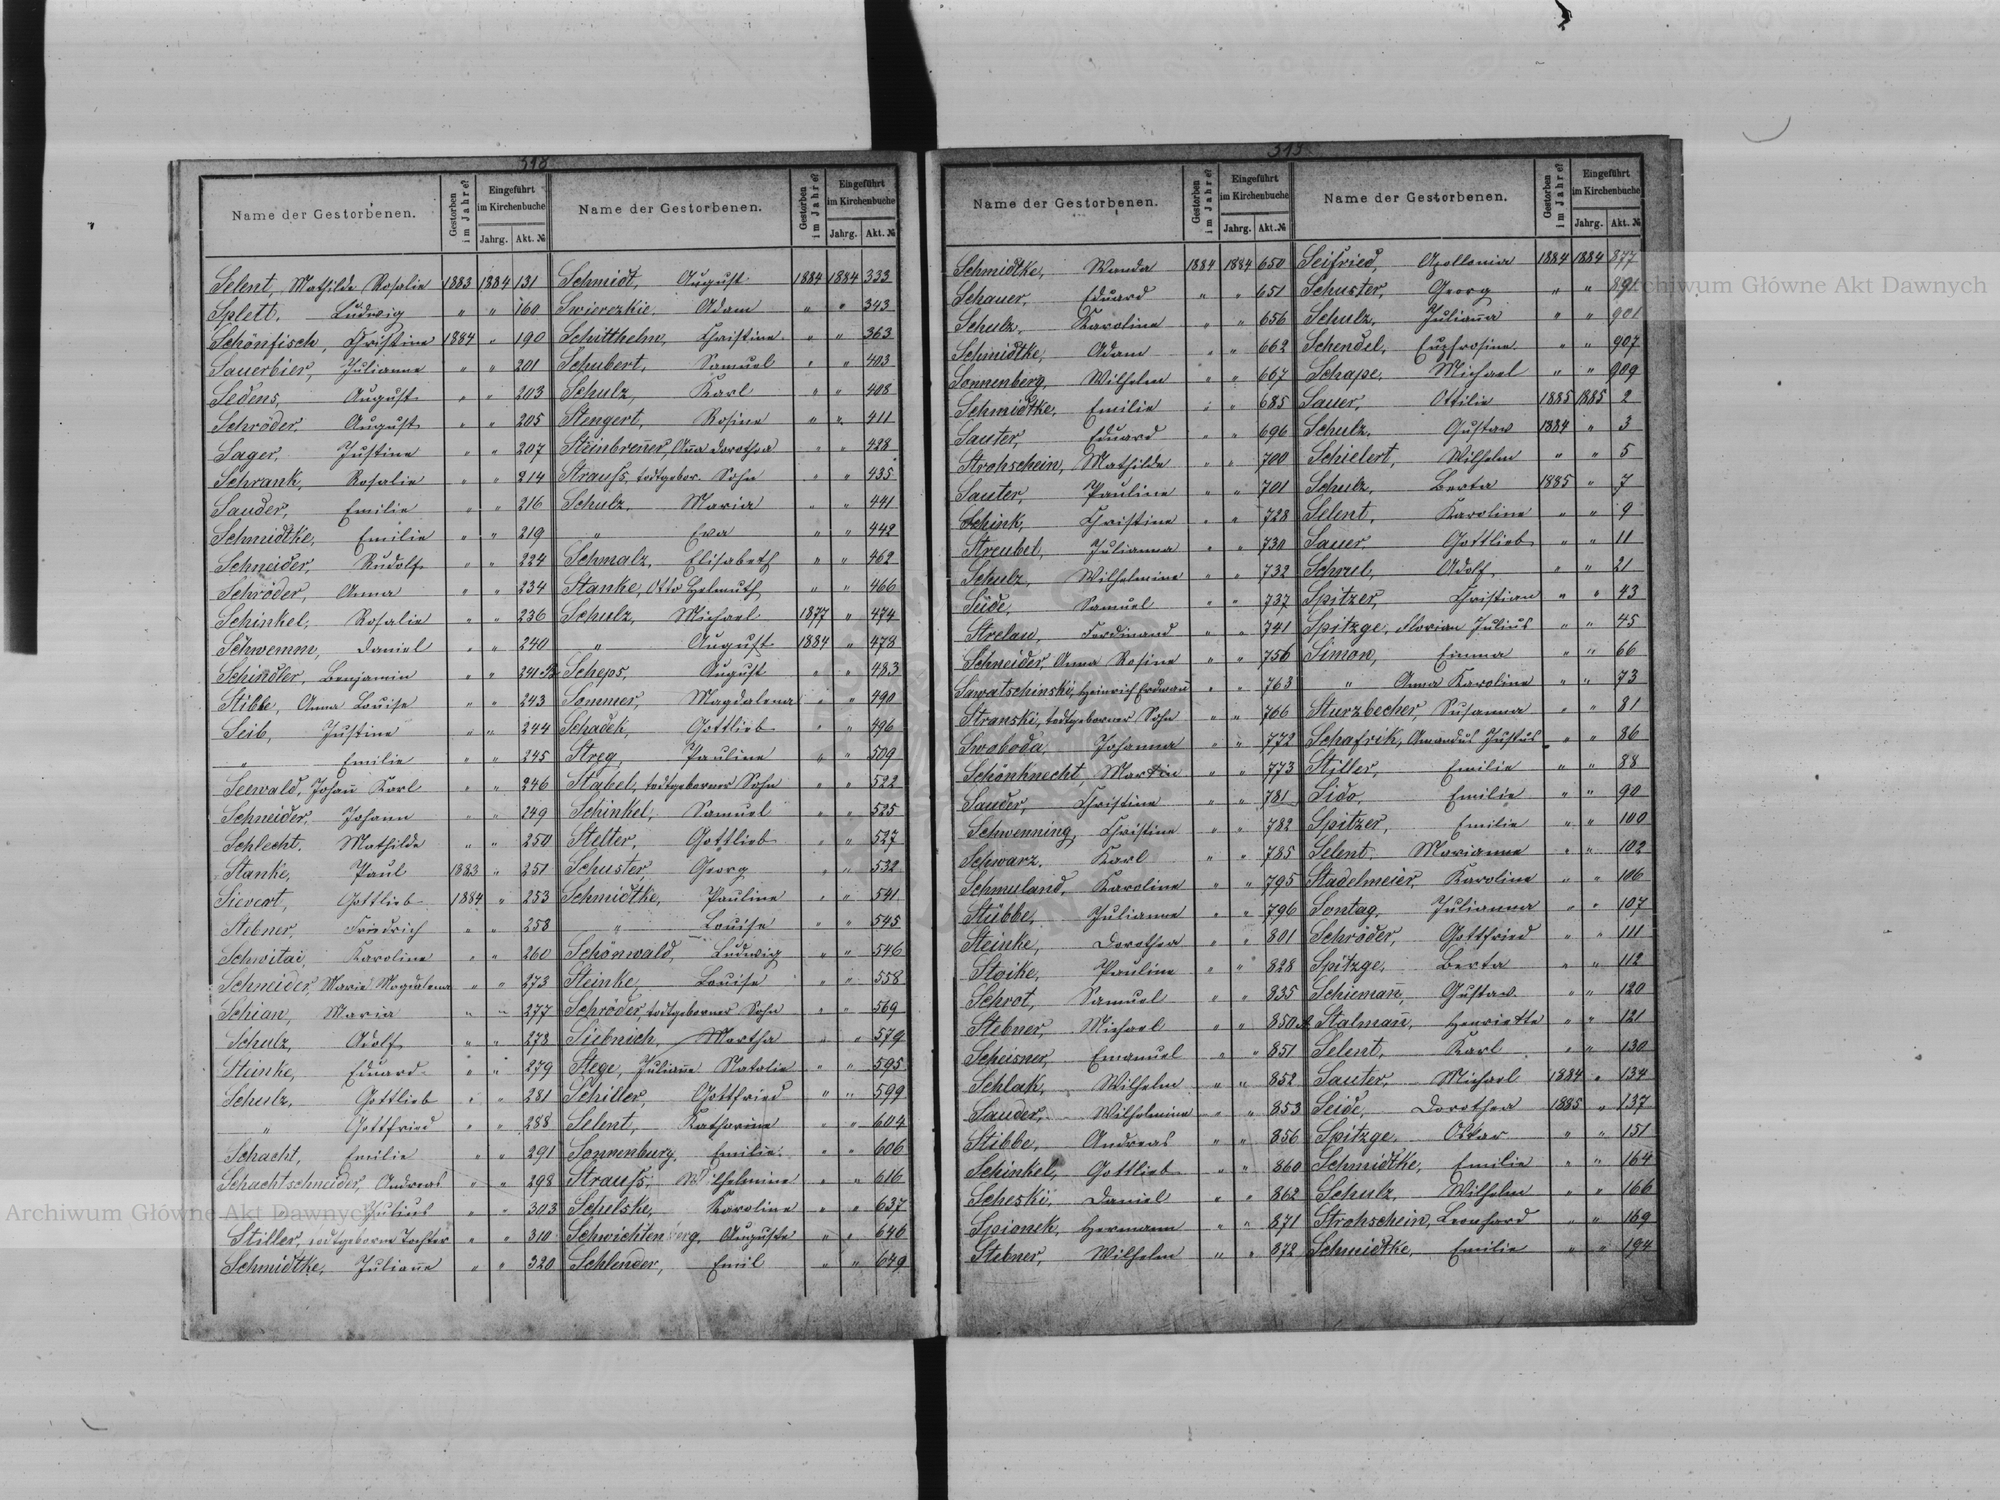 318
Name der Gestorbenen. Gestorben im Jahre? Eingeführt im Kirchenbuche Jahrg. Akt. №
Selent, Mathilde Rosalie 1883 1884 131
Splett, Ludwig " " 160
Schönfisch, Christine 1884 " 190
Sauerbier, Julianne " " 201
Sedens, August " " 203
Schröder, August " " 205
Sager, Justine " " 207
Schrank, Rosalie " " 214
Sauder, Emilie " " 216
Schmidtke, Emilie " " 219
Schneider, Rudolf " " 224
Schröder, Anna " " 234
Schinkel, Rosalie " " 236
Schwemm, Daniel " " 240
Schindler, Benjamin " " 241
Stibbe, Anna Louise " " 243
Seib, Justine " " 244
" Emilie " " 245
Seewald, Johañ Karl " " 246
Schneider, Johann " " 249
Schlecht, Mathilde " " 250
Stanke, Paul 1883 " 251
Sievert, Gottlieb 1884 " 253
Stebner, Friedrich " " 258
Schwitai, Karoline " " 260
Schneider, Marie Magdalena " " 273
Schian, Maria " " 277
Schulz, Adolf " " 278
Steinke, Eduard " " 279
Schulz, Gottlieb " " 281
" Gottfried " " 288
Schacht, Emilie " " 291
Schachtschneider, Andreas " " 298
Julius " " 303
Stiller, todtgeborne Tochter " " 310
Schmidtke, Juliañe " " 320
Name der Gestorbenen. Gestorben im Jahre? Eingeführt im Kirchenbuche Jahrg. Akt. №
Schmidt, August 1884 1884 333
Swierezkie, Adam " " 343
Schitthelm, Christine " " 363
Schubert, Samuel " " 403
Schulz, Karl " " 408
Stengert, Rosine " " 411
Steinbreñer, Aña Dorothea " " 428
Strauß, todtgebor. Sohn " " 435
Schulz, Maria " " 441
" Ewa " " 442
Schmalz, Elisabeth " " 462
Stanke, Otto Helmuth " " 466
Schulz, Michael 1877 " 474
" August 1884 " 478
Scheps, August " " 483
Sommer, Magdalena " " 490
Schadek, Gottlieb " " 496
Streg, Pauline " " 509
Stabel, todtgeborner Sohn " " 522
Schinkel, Samuel " " 525
Stelter, Gottlieb " " 527
Schuster, Georg " " 532
Schmidtke, Pauline " " 541
" Louise " " 545
Schönwald, Ludwig " " 546
Steinke, Louise " " 558
Schröder, todtgeborner Sohn " " 569
Siebnich, Martha " " 579
Stege, Juliañe Natalie " " 595
Schiller, Gottfried " " 599
Selent, Katharine " " 604
Sonnenburg, Emilie " " 606
Strauß, Wilhelmine " " 616
Schelske, Karoline " " 637
Schwichtenberg, Auguste " " 646
Schlender, Emil " " 649
Name der Gestorbenen. Gestorben im Jahre? Eingeführt im Kirchenbuche Jahrg. Akt. №
Schmidtke, Wanda 1884 1884 650
Schauer, Eduard " " 651
Schulz, Karoline " " 656
Schmidtke, Adam " " 662
Sonnenberg, Wilhelm " " 667
Schmidtke, Emilie " " 685
Sauter, Eduard " " 696
Strohschein, Mathilde " " 700
Sauter, Pauline " " 701
Schink, Christine " " 728
Streubel, Julianna " " 730
Schulz, Wilhelmine " " 732
Seide, Samuel " " 737
Strelau, Ferdinand " " 741
Schneider, Anna Rosine " " 756
Sawatschinski, Heinrich " " 763
Stranski, todtgeborner Sohn " " 766
Swoboda, Johanna " " 772
Schönknecht, Martin " " 773
Sauder, Christine " " 781
Schwenning, Christine " " 782
Schwarz, Karl " " 785
Schmuland, Karoline " " 795
Stübbe, Julianne " " 796
Steinke, Dorothea " " 801
Stoike, Pauline " " 828
Schrot, Samuel " " 835
Stebner, Michael " " 850
Scheisner, Emanuel " " 851
Schlak, Wilhelm " " 852
Sauder, Wilhelmine " " 853
Stibbe, Andreas " " 856
Schinkel, Gottlieb " " 860
Scheski, Daniel " " 862
Spionek, Hermann " " 871
Stebner, Wilhelm " " 872
Name der Gestorbenen. Gestorben im Jahre? Eingeführt im Kirchenbuche Jahrg. Akt. №
Seifried, Apollonia 1884 1884 877
Schuster, Georg " " 891
Schulz, Juliaña " " 901
Schendel, Eufrosine " " 907
Schape, Michael " " 909
Sauer, Ottilie 1885 1885 2
Schulz, Gustav 1884 " 3
Schielert, Wilhelm " " 5
Schulz, Berta 1885 " 7
Selent, Karoline " " 9
Sauer, Gottlieb " " 11
Adolf " " 21
Spitzer, Christian " " 43
Spitzge, Florian Julius " " 45
Simon, Emma " " 66
" Anna Karoline " " 73
Sturzbecher, Susanna " " 81
Schafrik, Amandus Justus " " 86
Stiller, Emilie " " 88
Sido, Emilie " " 90
Spitzer, Emilie " " 100
Selent, Marianne " " 102
Stadelmeier, Karoline " " 106
Sontag, Julianna " " 107
Schröder, Gottfried " " 111
Spitzge, Berta " " 112
Schiemañ, Gustav " " 120
Stalmañ, Henriette " " 121
Selent, Karl " " 130
Sauter, Michael 1884 " 134
Seide, Dorothea 1885 " 137
Spitzge, Oskar " " 151
Schmidtke, Emilie " " 164
Schulz, Wilhelm " " 166
Strohschein, Leonhard " " 169
Schmidtke, Emilie " " 194
Archiwum Główne Akt Dawnych
Archiwum Główne Akt Dawnych